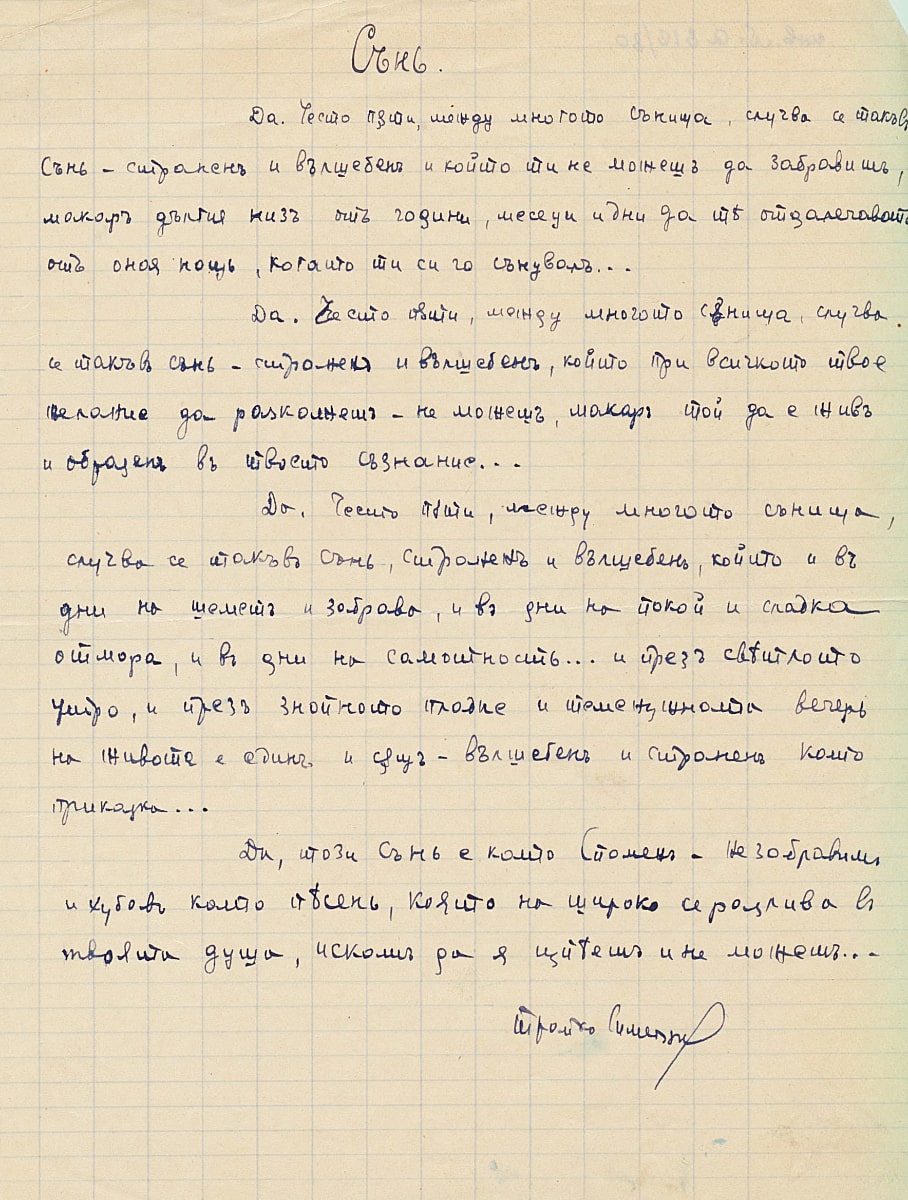 Сънь.
Да. Често пѫти, между многото сънища, случва се такъв
Сънь – страненъ и вълшебенъ и който ти не можешъ да забравишъ,
макаръ дългия низъ отъ години, месеци и дни да тѣ отдалечаватъ
отъ оная нощь, когаито ти си го сънувалъ...
Да. Често пѫти, между многото сѫнища, случва
се такъвъ сънь – страненъ и вълшебенъ, който при всичкото твое
желание да разкажешъ – не можешъ, макаръ той да е живъ
и образенъ въ твоето съзнание...
Да. Често пѫти, между многото сънища,
случва се такъвъ Сънь, страненъ и вълшебенъ, който и въ
дни на шеметъ и забрава, и въ дни на покой и сладка
отмора, и въ дни на самотность... и презъ свѣтлото
утро, и презъ знойното пладне и теменужната вечерь
на живота е единъ и сѫщъ – вълшебенъ и страненъ като
приказка...
Да, този Сънь е като Споменъ – незабравимъ
и хубавъ като пѣсень, която на широко се разлива въ
твоята душа, искашъ да я изпѣешъ и не можешъ...
Трайко Симеонов